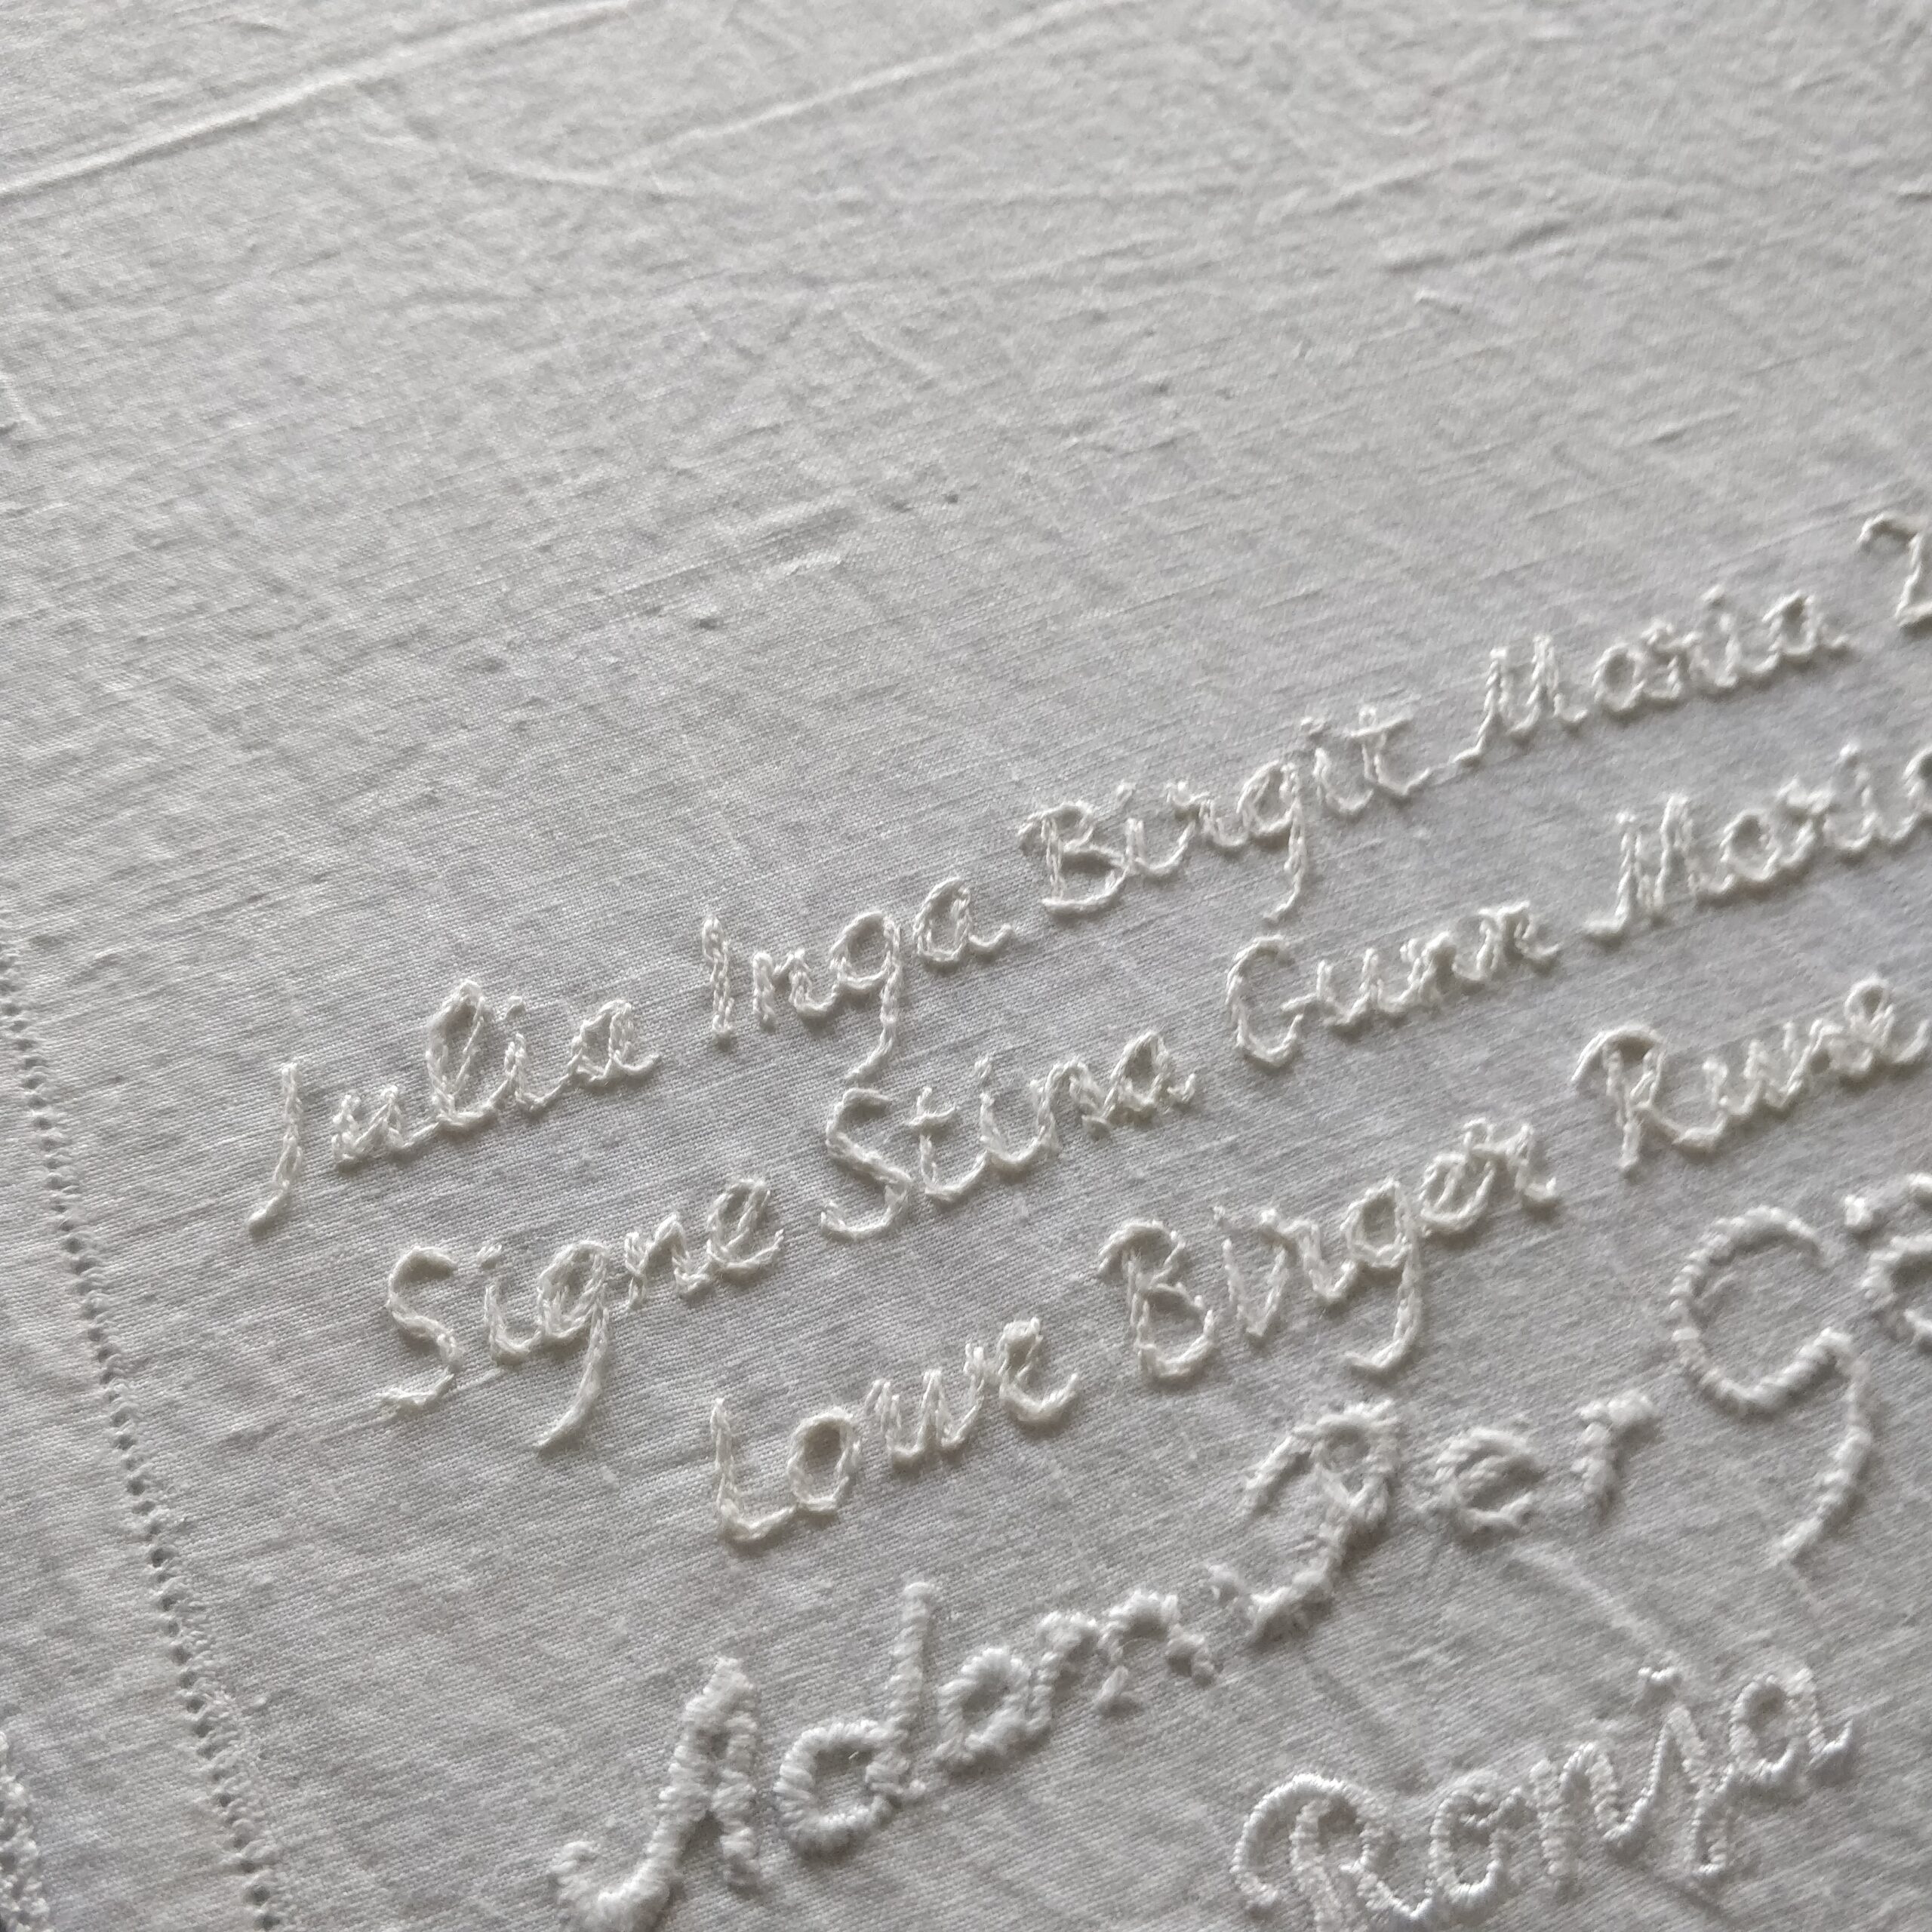 Julia Inga Birgit Maria 2
Signe Stina Gunn Maria
Lowe Birger Rune
Adam Per Gö
Ronja